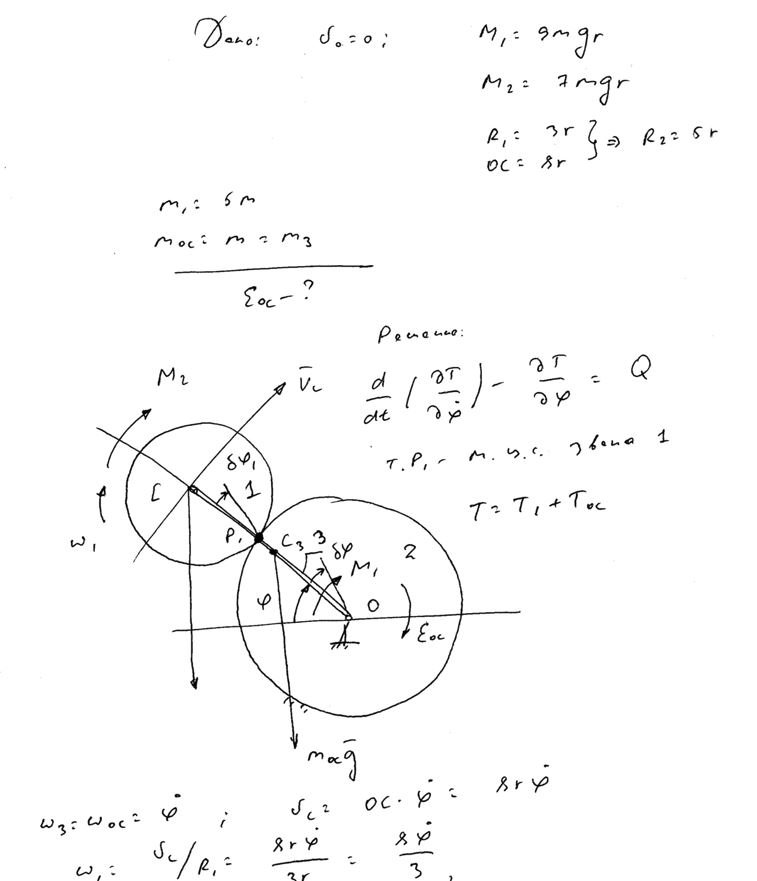 Дано: v₀=0; M₁= 9mgr
M₂= 7mgr
R₁= 3r } ⇒ R₂= 5r
OC= 8r
m₁= 5m
m_OC= m = m₃
ε_OC - ?
Решение:
d/dt (∂T/∂φ̇) - ∂T/∂φ = Q
т. P₁ - м.ц.с. звена 1
T= T₁ + T_OC
M₂
V̄_C
δφ₁
C
1
ω₁
P₁
C₃
3
δφ
2
M₁
φ
O
ε_OC
m_OC ḡ
ω₃=ω_OC= φ̇ ; v_C= OC·φ̇ = 8rφ̇
ω₁= v_C/R₁= 8rφ̇/3r = 8φ̇/3,